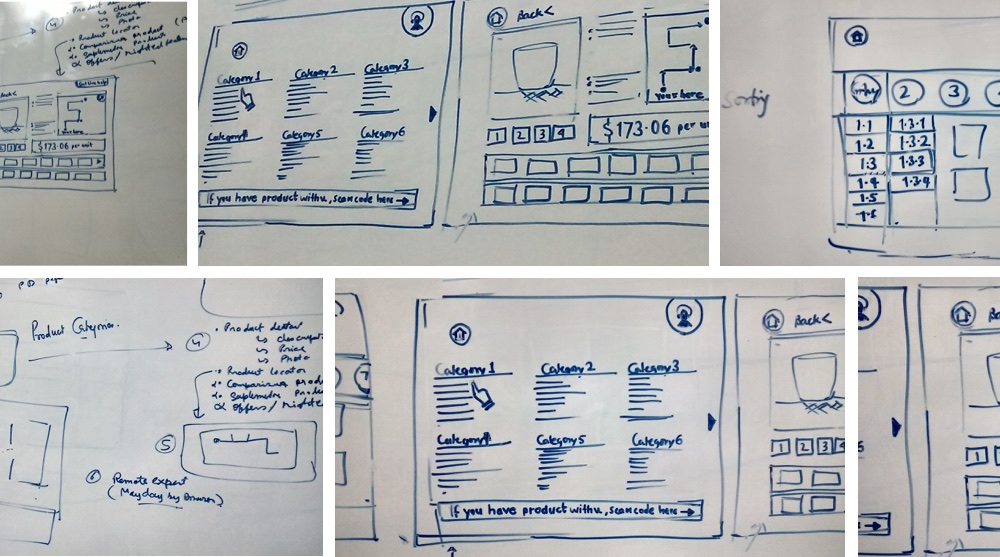 ④ • Product
Price
Photo
• Product locator
• Comparison product
Offers/
Back<
You're here
$173.06 per unit
Category 1 Category 2 Category 3
Category 4 Category 5 Category 6
If you have product with u, scan code here →
Back<
You're here
1 2 3 4
$173.06 per
Sorting
2 3
1.1 1.3.1
1.2 1.3.2
1.3 1.3.3
1.4 1.3.4
1.5
1.6
Product Categories.
④ • Product detail
Price
Photo
• Product locator
• Comparison
Offers/
⑤
⑥ Remote expert
(Mayday by Amazon)
7
Category 1 Category 2 Category 3
Category 4 Category 5 Category 6
If you have product with u, scan code here →
Back<
1 2 3 4
Ba
1